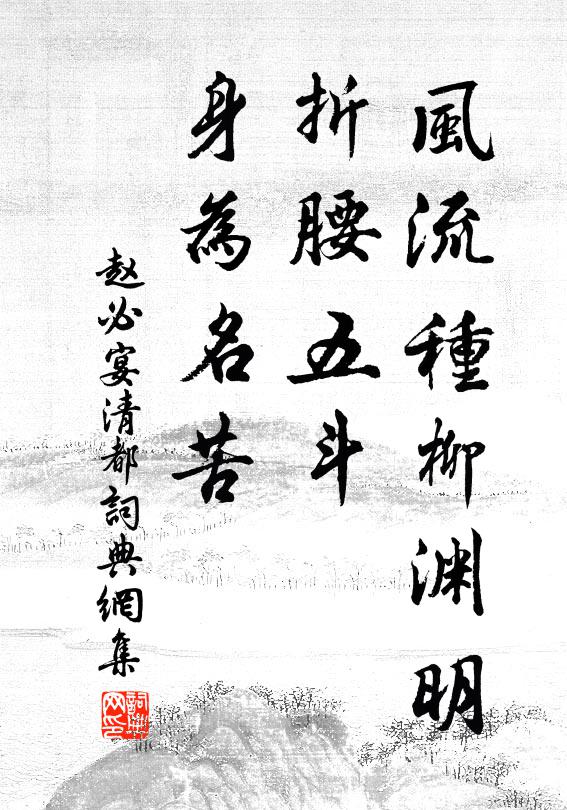 風流種柳渊明
折腰五斗
身為名苦
赵必宴清都詞典網集